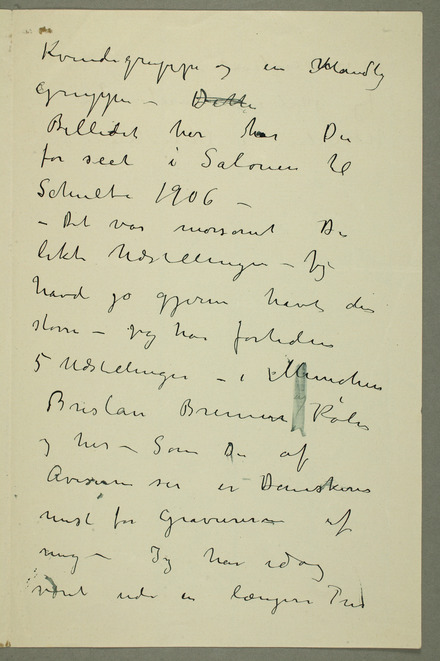 Kvindegruppe og en Mandlig
gruppe – Dette
Billedet her har De
for seet i Salonen til
Schulte 1906 –
– Det var morsomt De
likte Udstillingen – Jeg
havd jo gjerne havt den
større – jeg har fortiden
5 Udstillinger – i München
Breslau Bremen Köln
og her – Som De af
Aviserne ser er Danskerne
mest for Gravurerne af
mig – Jeg har idag
været ude en længere